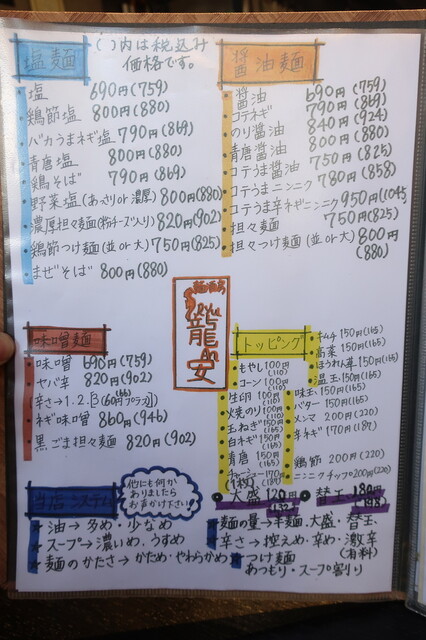 塩麺
( )内は税込み
価格です。
塩 690円(759)
鶏節塩 800円(880)
バカうまネギ塩 790円(869)
青唐塩 800円(880)
鶏そば 790円(869)
野菜塩(あっさりor濃厚) 800円(880)
濃厚担々麺(粉チーズ入り) 820円(902)
鶏節つけ麺(並or大) 750円(825)
まぜそば 800円(880)
醤油麺
醤油 690円(759)
コテネギ 790円(869)
のり醤油 840円(924)
青唐醤油 800円(880)
コテうま醤油 750円(825)
コテうまニンニク 780円(858)
コテうま辛ネギニンニク 950円(1045)
担々麺 750円(825)
担々つけ麺(並or大) 800円
(880)
麺酒房
龍安
味噌麺
味噌 690円(759)
ヤバ辛 820円(902)
辛さ→1.2.3(60円プラス)
(66)
ネギ味噌 860円(946)
黒ごま担々麺 820円(902)
トッピング
もやし 100円
(110)
コーン 100円
(110)
生卵 100円(110)
焼のり 100円
(110)
玉ねぎ 150円
(165)
白ネギ 150円
(165)
青唐 150円
(165)
チャーシュー 170円
(1枚) (187)
キムチ 150円(165)
高菜 150円(165)
ほうれん草 150円(165)
温玉 150円(165)
味玉 150円(165)
バター 150円(165)
メンマ 200円(220)
辛ネギ 170円(187)
鶏節 200円(220)
ニンニクチップ 200円(220)
大盛 120円
(132)
替玉 180円
(198)
当店システム
他にも何か
ありましたら
お声かけ下さい!
★油→多め、少なめ
★スープ→濃いめ、うすめ
★麺のかたさ→かため・やわらかめ
★麺の量→半麺、大盛・替玉
★辛さ→控えめ・辛め・激辛
(有料)
★つけ麺
あつもり・スープ割り